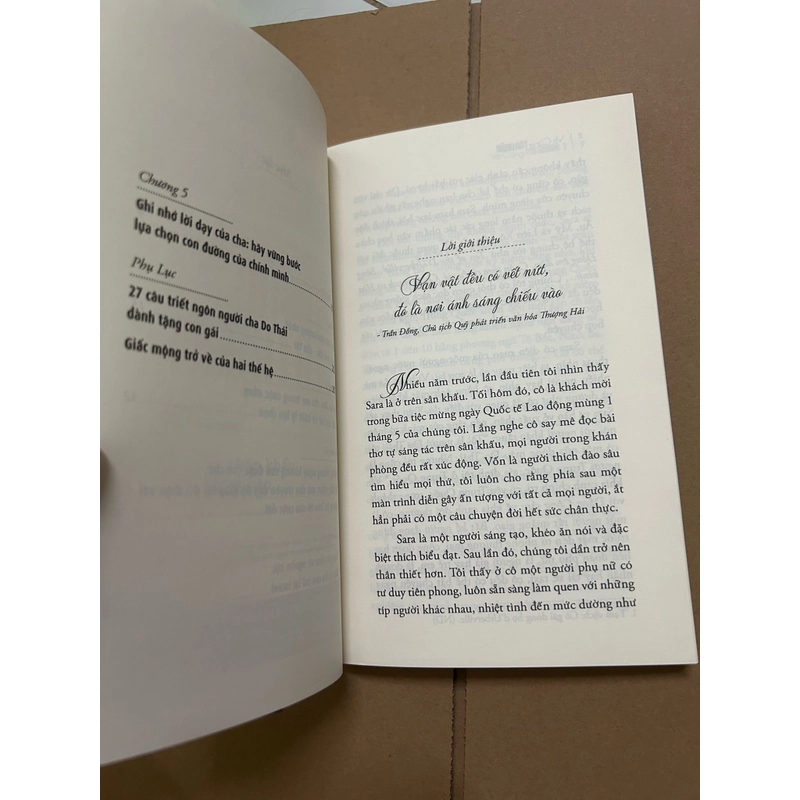 Chương 5
Ghi nhớ lời dạy của cha: hãy vững bước
lựa chọn con đường của chính mình
Phụ Lục
27 câu triết ngôn người cha Do Thái
dành tặng con gái
Giấc mộng trở về của hai thế hệ
Lời giới thiệu
Vạn vật đều có vết nứt,
đó là nơi ánh sáng chiếu vào
- Trần Đồng, Chủ tịch Quỹ phát triển văn hóa Thượng Hải
Nhiều năm trước, lần đầu tiên tôi nhìn thấy
Sara là ở trên sân khấu. Tối hôm đó, cô là khách mời
trong bữa tiệc mừng ngày Quốc tế Lao động mùng 1
tháng 5 của chúng tôi. Lắng nghe cô say mê đọc bài
thơ tự sáng tác trên sân khấu, mọi người trong khán
phòng đều rất xúc động. Vốn là người thích đào sâu
tìm hiểu mọi thứ, tôi luôn cho rằng phía sau một
màn trình diễn gây ấn tượng với tất cả mọi người, ắt
hẳn phải có một câu chuyện đời hết sức chân thực.
Sara là một người sáng tạo, khéo ăn nói và đặc
biệt thích biểu đạt. Sau lần đó, chúng tôi dần trở nên
thân thiết hơn. Tôi thấy ở cô một người phụ nữ có
tư duy tiên phong, luôn sẵn sàng làm quen với những
típ người khác nhau, nhiệt tình đến mức dường như